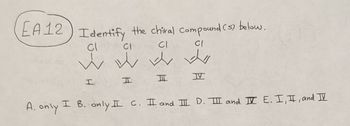 EA12 Identify the chiral compound(s) below.
Cl Cl Cl Cl
I II III IV
A. only I B. only II C. II and III D. III and IV E. I, II, and IV